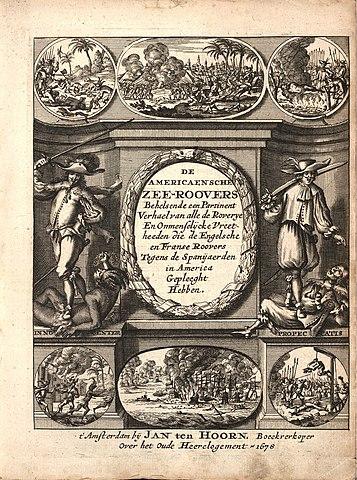 DE
AMERICAENSCHE
ZEE-ROOVERS
Behelsende een Pertinent
Verhael van alle de Roverye
En Onmenselycke Vreet-
heeden die de Engelsche
en Franse Roovers
Tegens de Spanjaerden
in America
Gepleeght
Hebben.
INNO CENTER
PROPEC CATIS
t'Amsterdam bij JAN ten HOORN. Boeckverkoper
Over het Oude Heerelogement 1678